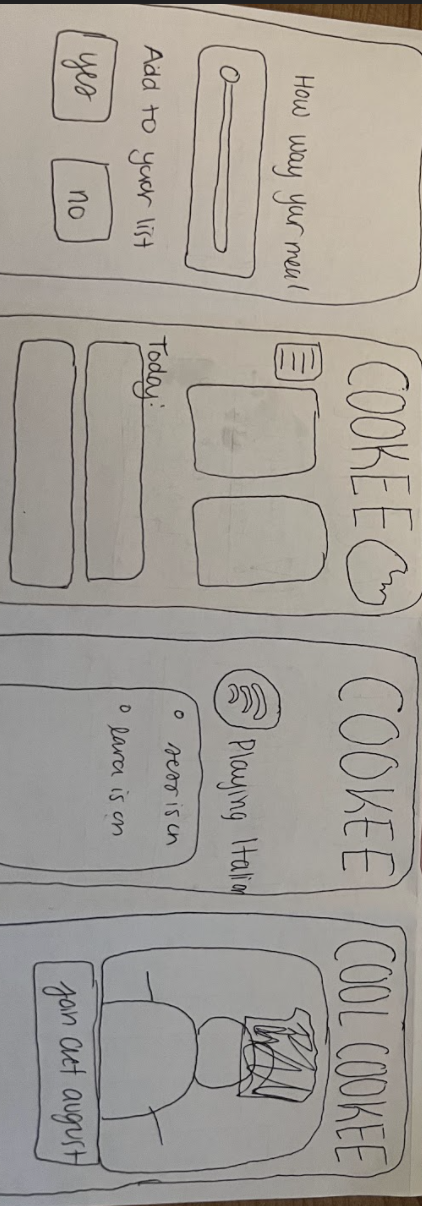 How way your meal
Add to your list
yes
no
COOKEE
Today:
COOKEE
Playing Italian
is on
lara is on
COOL COOKEE
join chef august